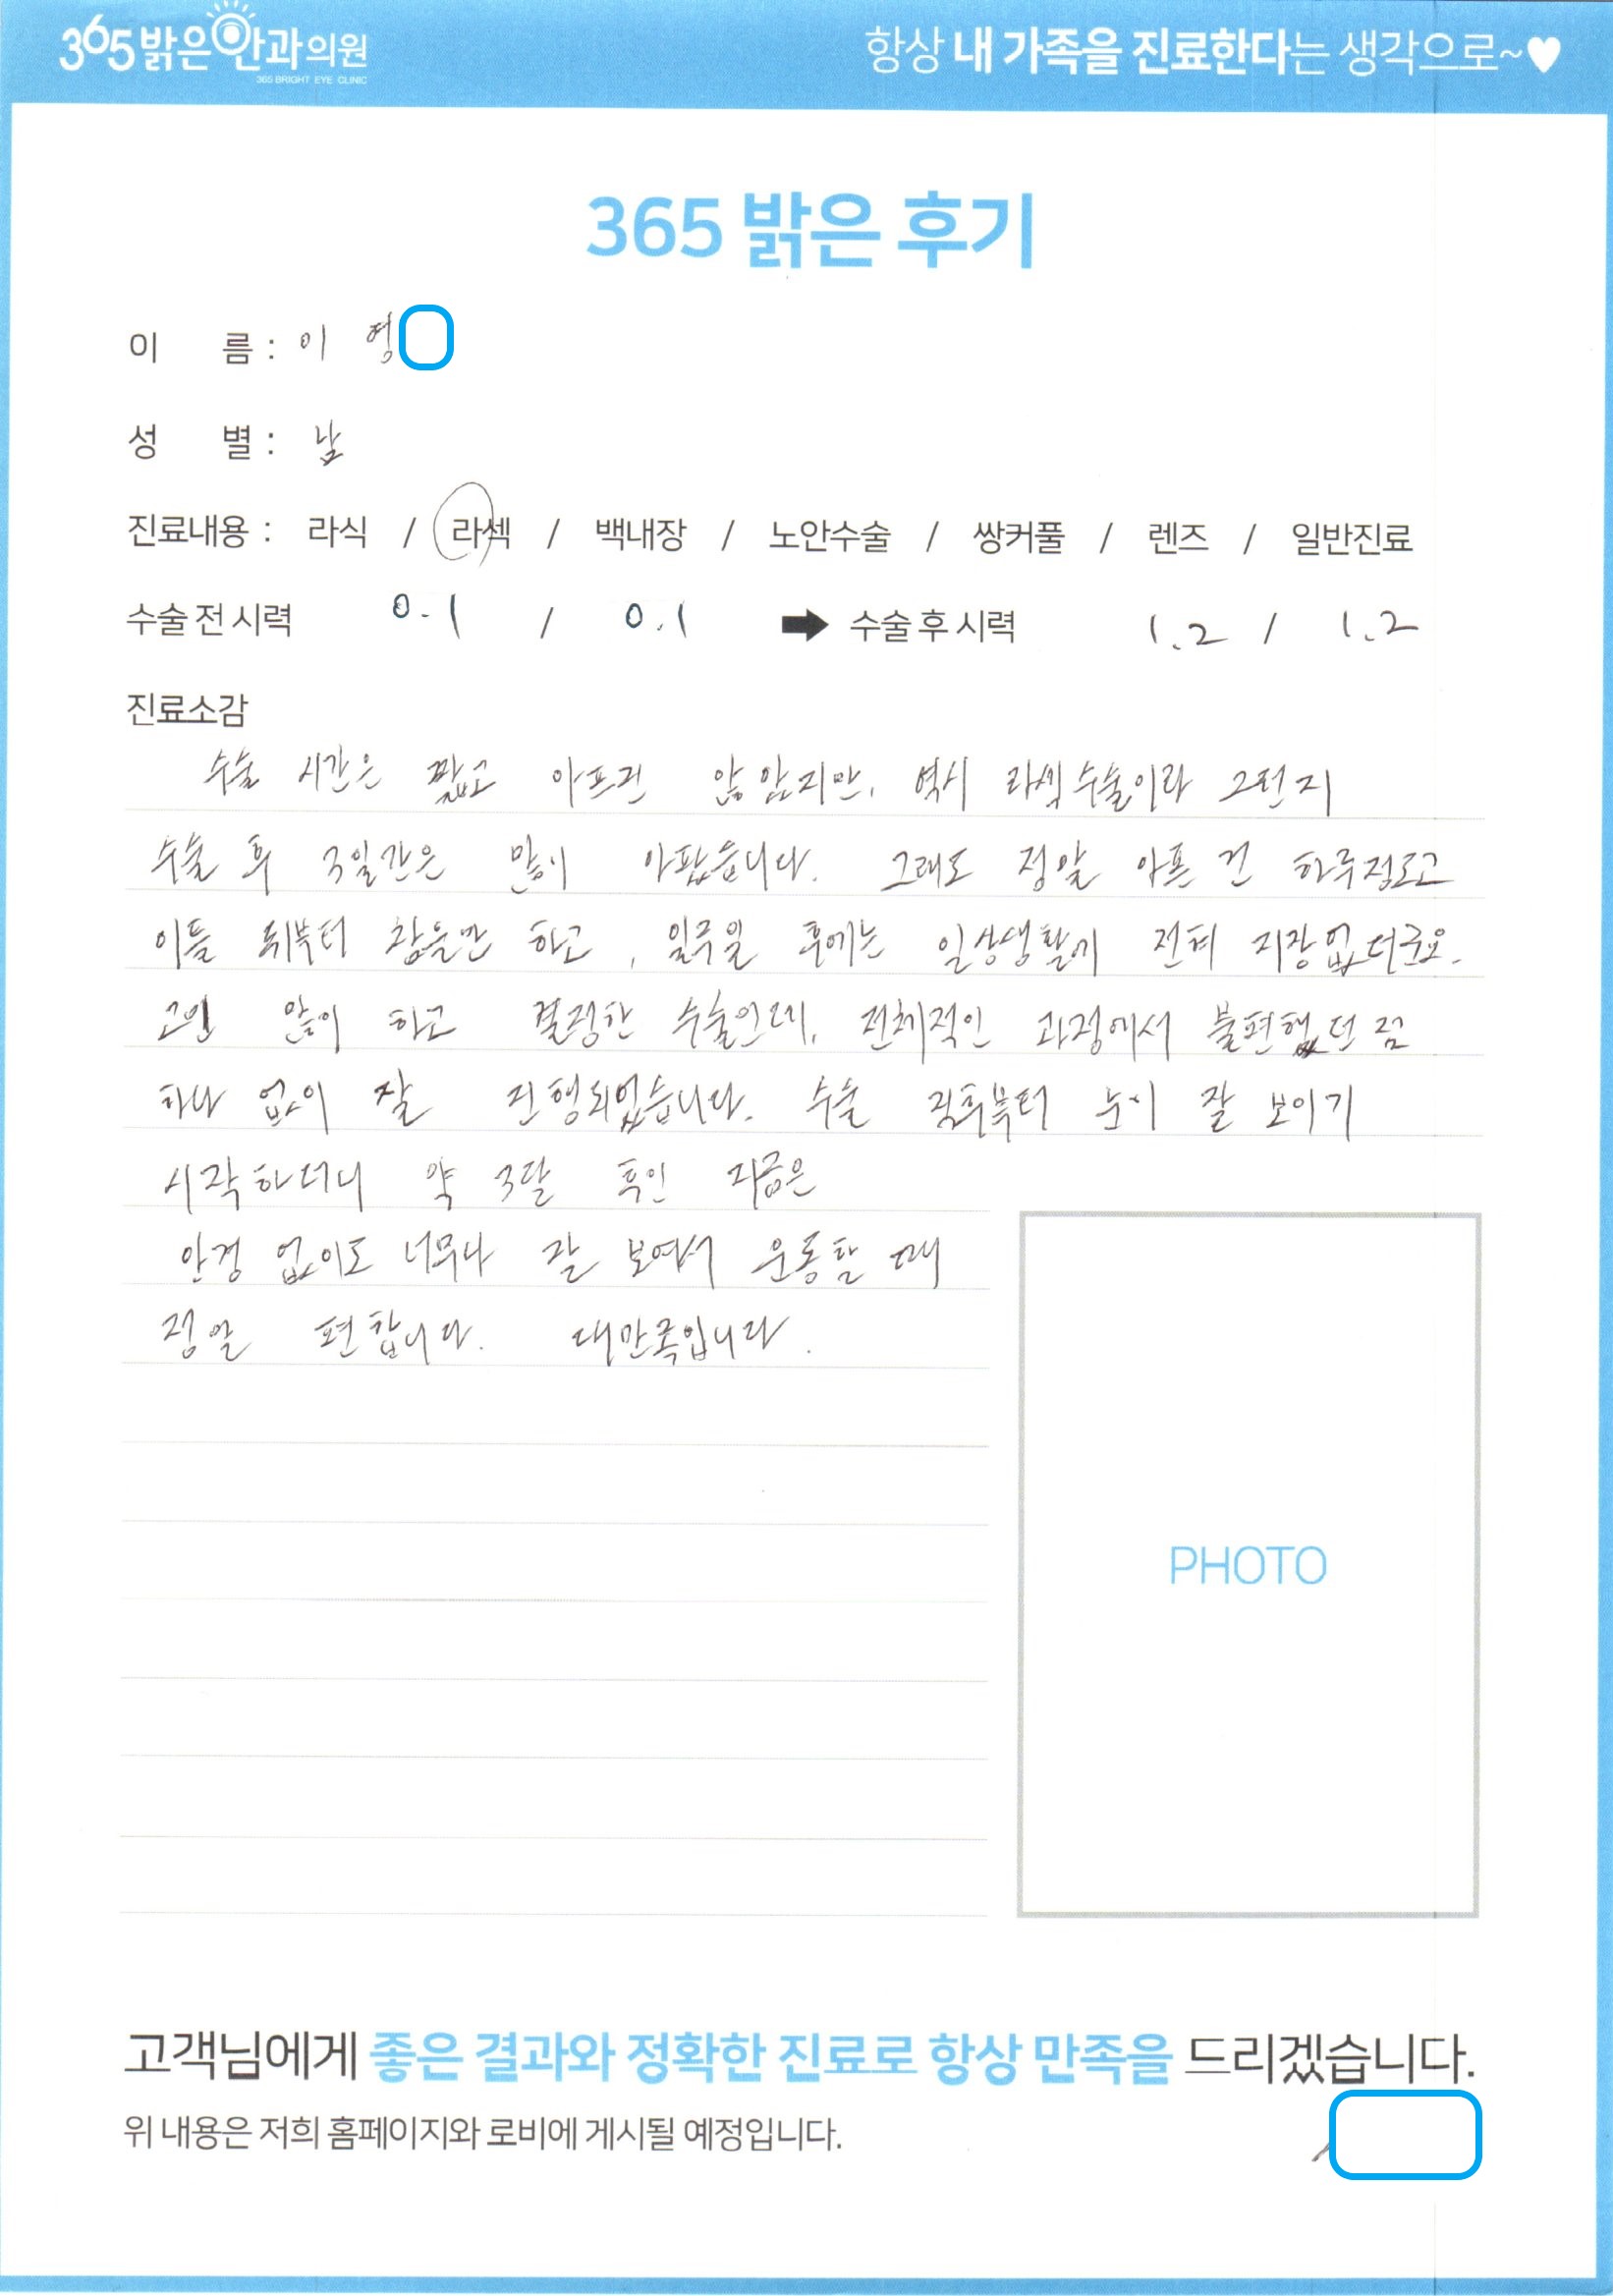 365밝은안과의원
365 BRIGHT EYE CLINIC
항상 내 가족을 진료한다는 생각으로~♥
365 밝은 후기
이 름 : 이 영
성 별 : 남
진료내용 : 라식 / 라섹 / 백내장 / 노안수술 / 쌍커풀 / 렌즈 / 일반진료
수술 전 시력 0.1 / 0.1 ➡ 수술 후 시력 1.2 / 1.2
진료소감
수술 시간은 짧고 아프진 않았지만, 역시 라섹수술이라 그런지
수술 후 3일간은 많이 아팠습니다. 그래도 정말 아픈 건 하루정도고
이틀 뒤부터 참을만 하고, 일주일 후에는 일상생활에 전혀 지장없더군요.
고민 많이 하고 결정한 수술인데, 전체적인 과정에서 불편했던 점
하나 없이 잘 진행되었습니다. 수술 직후부터 눈이 잘 보이기
시작하더니 약 3달 후인 지금은
안경 없이도 너무나 잘 보여서 운동할 때
정말 편합니다. 대만족입니다.
PHOTO
고객님에게 좋은 결과와 정확한 진료로 항상 만족을 드리겠습니다.
위 내용은 저희 홈페이지와 로비에 게시될 예정입니다.